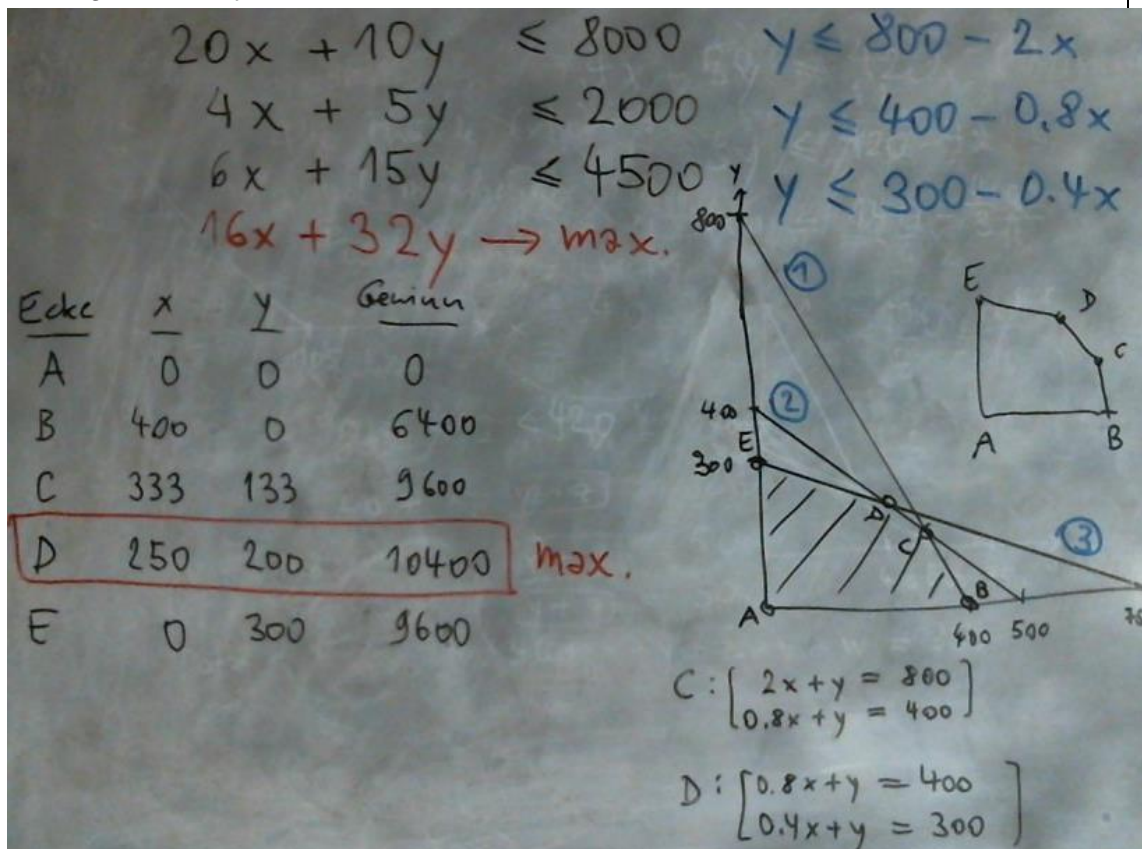 20x + 10y ≤ 8000 y ≤ 800 - 2x
4x + 5y ≤ 2000 y ≤ 400 - 0.8x
6x + 15y ≤ 4500 y ≤ 300 - 0.4x
16x + 32y → max.
Ecke x y Gewinn
A 0 0 0
B 400 0 6400
C 333 133 9600
D 250 200 10400 max.
E 0 300 9600
y
800
①
400 ②
E
300
D
C
③
A B
400 500
E
D
C
A B
C: [ 2x + y = 800 ]
[ 0.8x + y = 400 ]
D: [ 0.8x + y = 400 ]
[ 0.4x + y = 300 ]